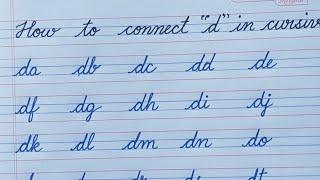 How to connect "d" in cursiv
da db dc dd de
df dg dh di dj
dk dl dm dn do